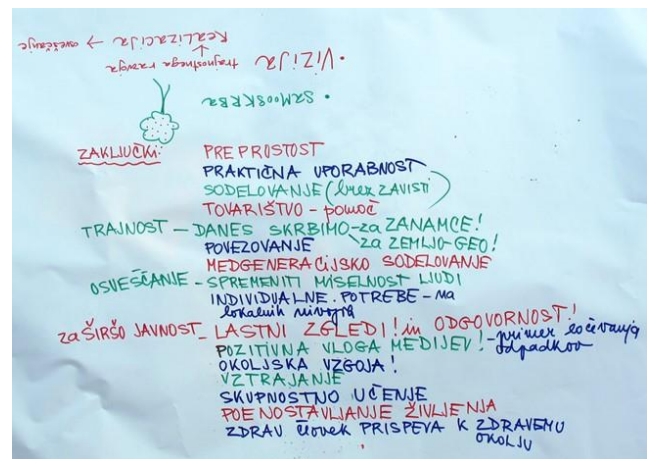 • SAMOOSKRBA
• VIZIJA trajnostnega razvoja
Realizacija → osveščanje
ZAKLJUČKI:
PREPROSTOST
PRAKTIČNA UPORABNOST
SODELOVANJE (brez ZAVISTI)
TOVARIŠTVO - pomoč
TRAJNOST – DANES SKRBIMO - za ZANAMCE!
za ZEMLJO-GEO!
POVEZOVANJE
MEDGENERACIJSKO SODELOVANJE
OSVEŠČANJE - SPREMENITI MISELNOST LJUDI
INDIVIDUALNE POTREBE - na
lokalnih nivojih
za ŠIRŠO JAVNOST - LASTNI ZGLEDI! in ODGOVORNOST!
POZITIVNA VLOGA MEDIJEV! - primer ločevanja
odpadkov
OKOLJSKA VZGOJA!
VZTRAJANJE
SKUPNOSTNO UČENJE
POENOSTAVLJANJE ŽIVLJENJA
ZDRAV ČLOVEK PRISPEVA K ZDRAVEMU
OKOLJU